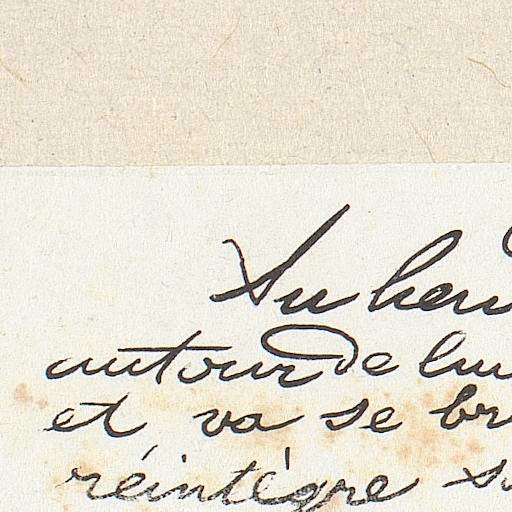 autour de lui
et va se br
réintègre s